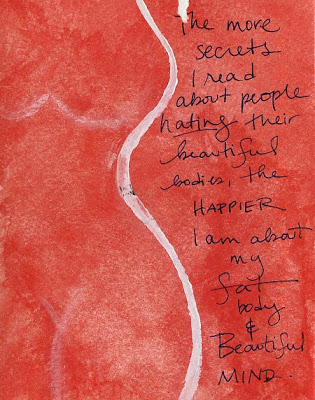 The more
secrets
I read
about people
hating their
beautiful
bodies, the
HAPPIER
I am about
my
fat
body
&
Beautiful
MIND.